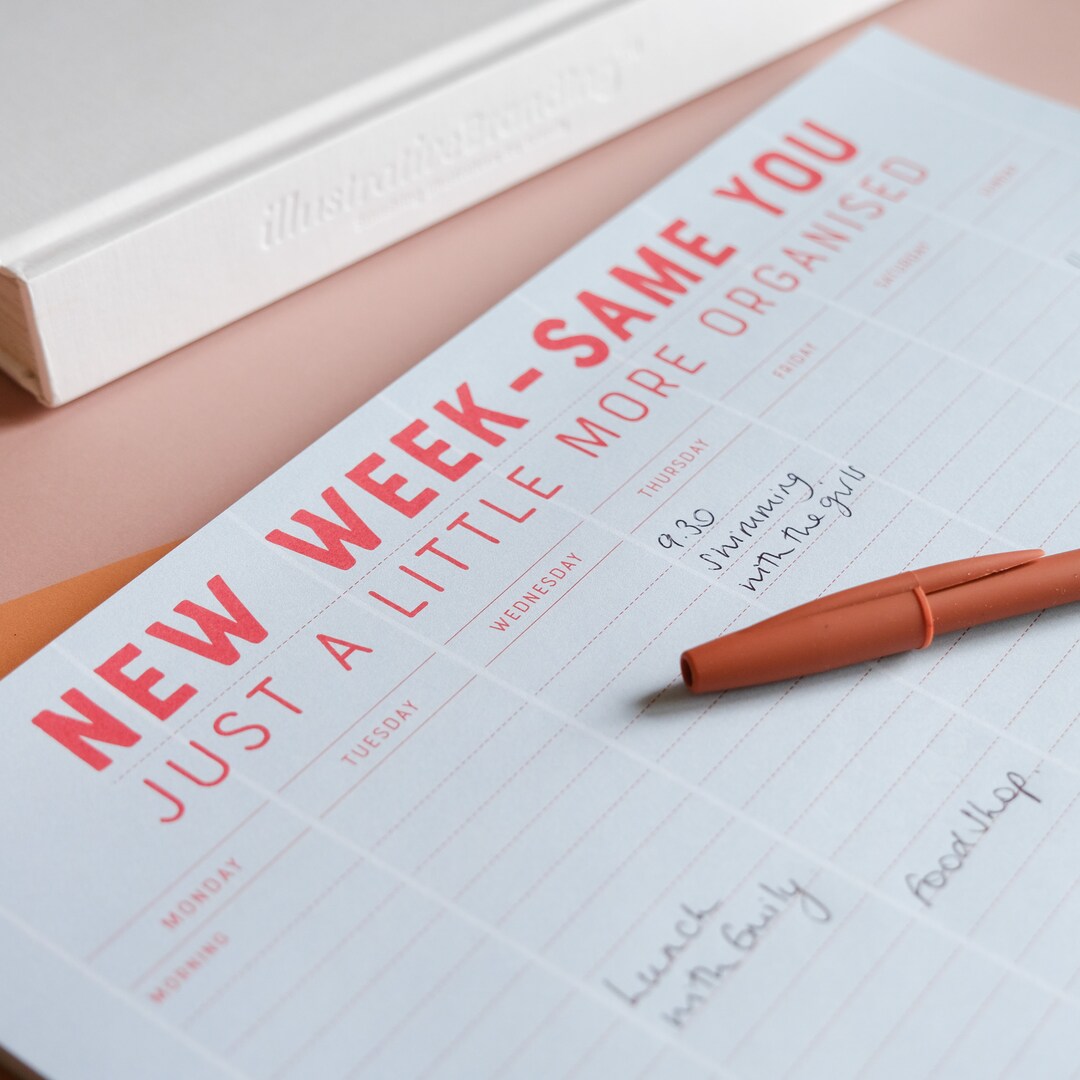 illustrated branding
NEW WEEK - SAME YOU
JUST A LITTLE MORE ORGANISED
MONDAY
TUESDAY
WEDNESDAY
THURSDAY
FRIDAY
SATURDAY
SUNDAY
MORNING
9.30
Swimming
with the girls
Lunch
with Emily
Food Shop.